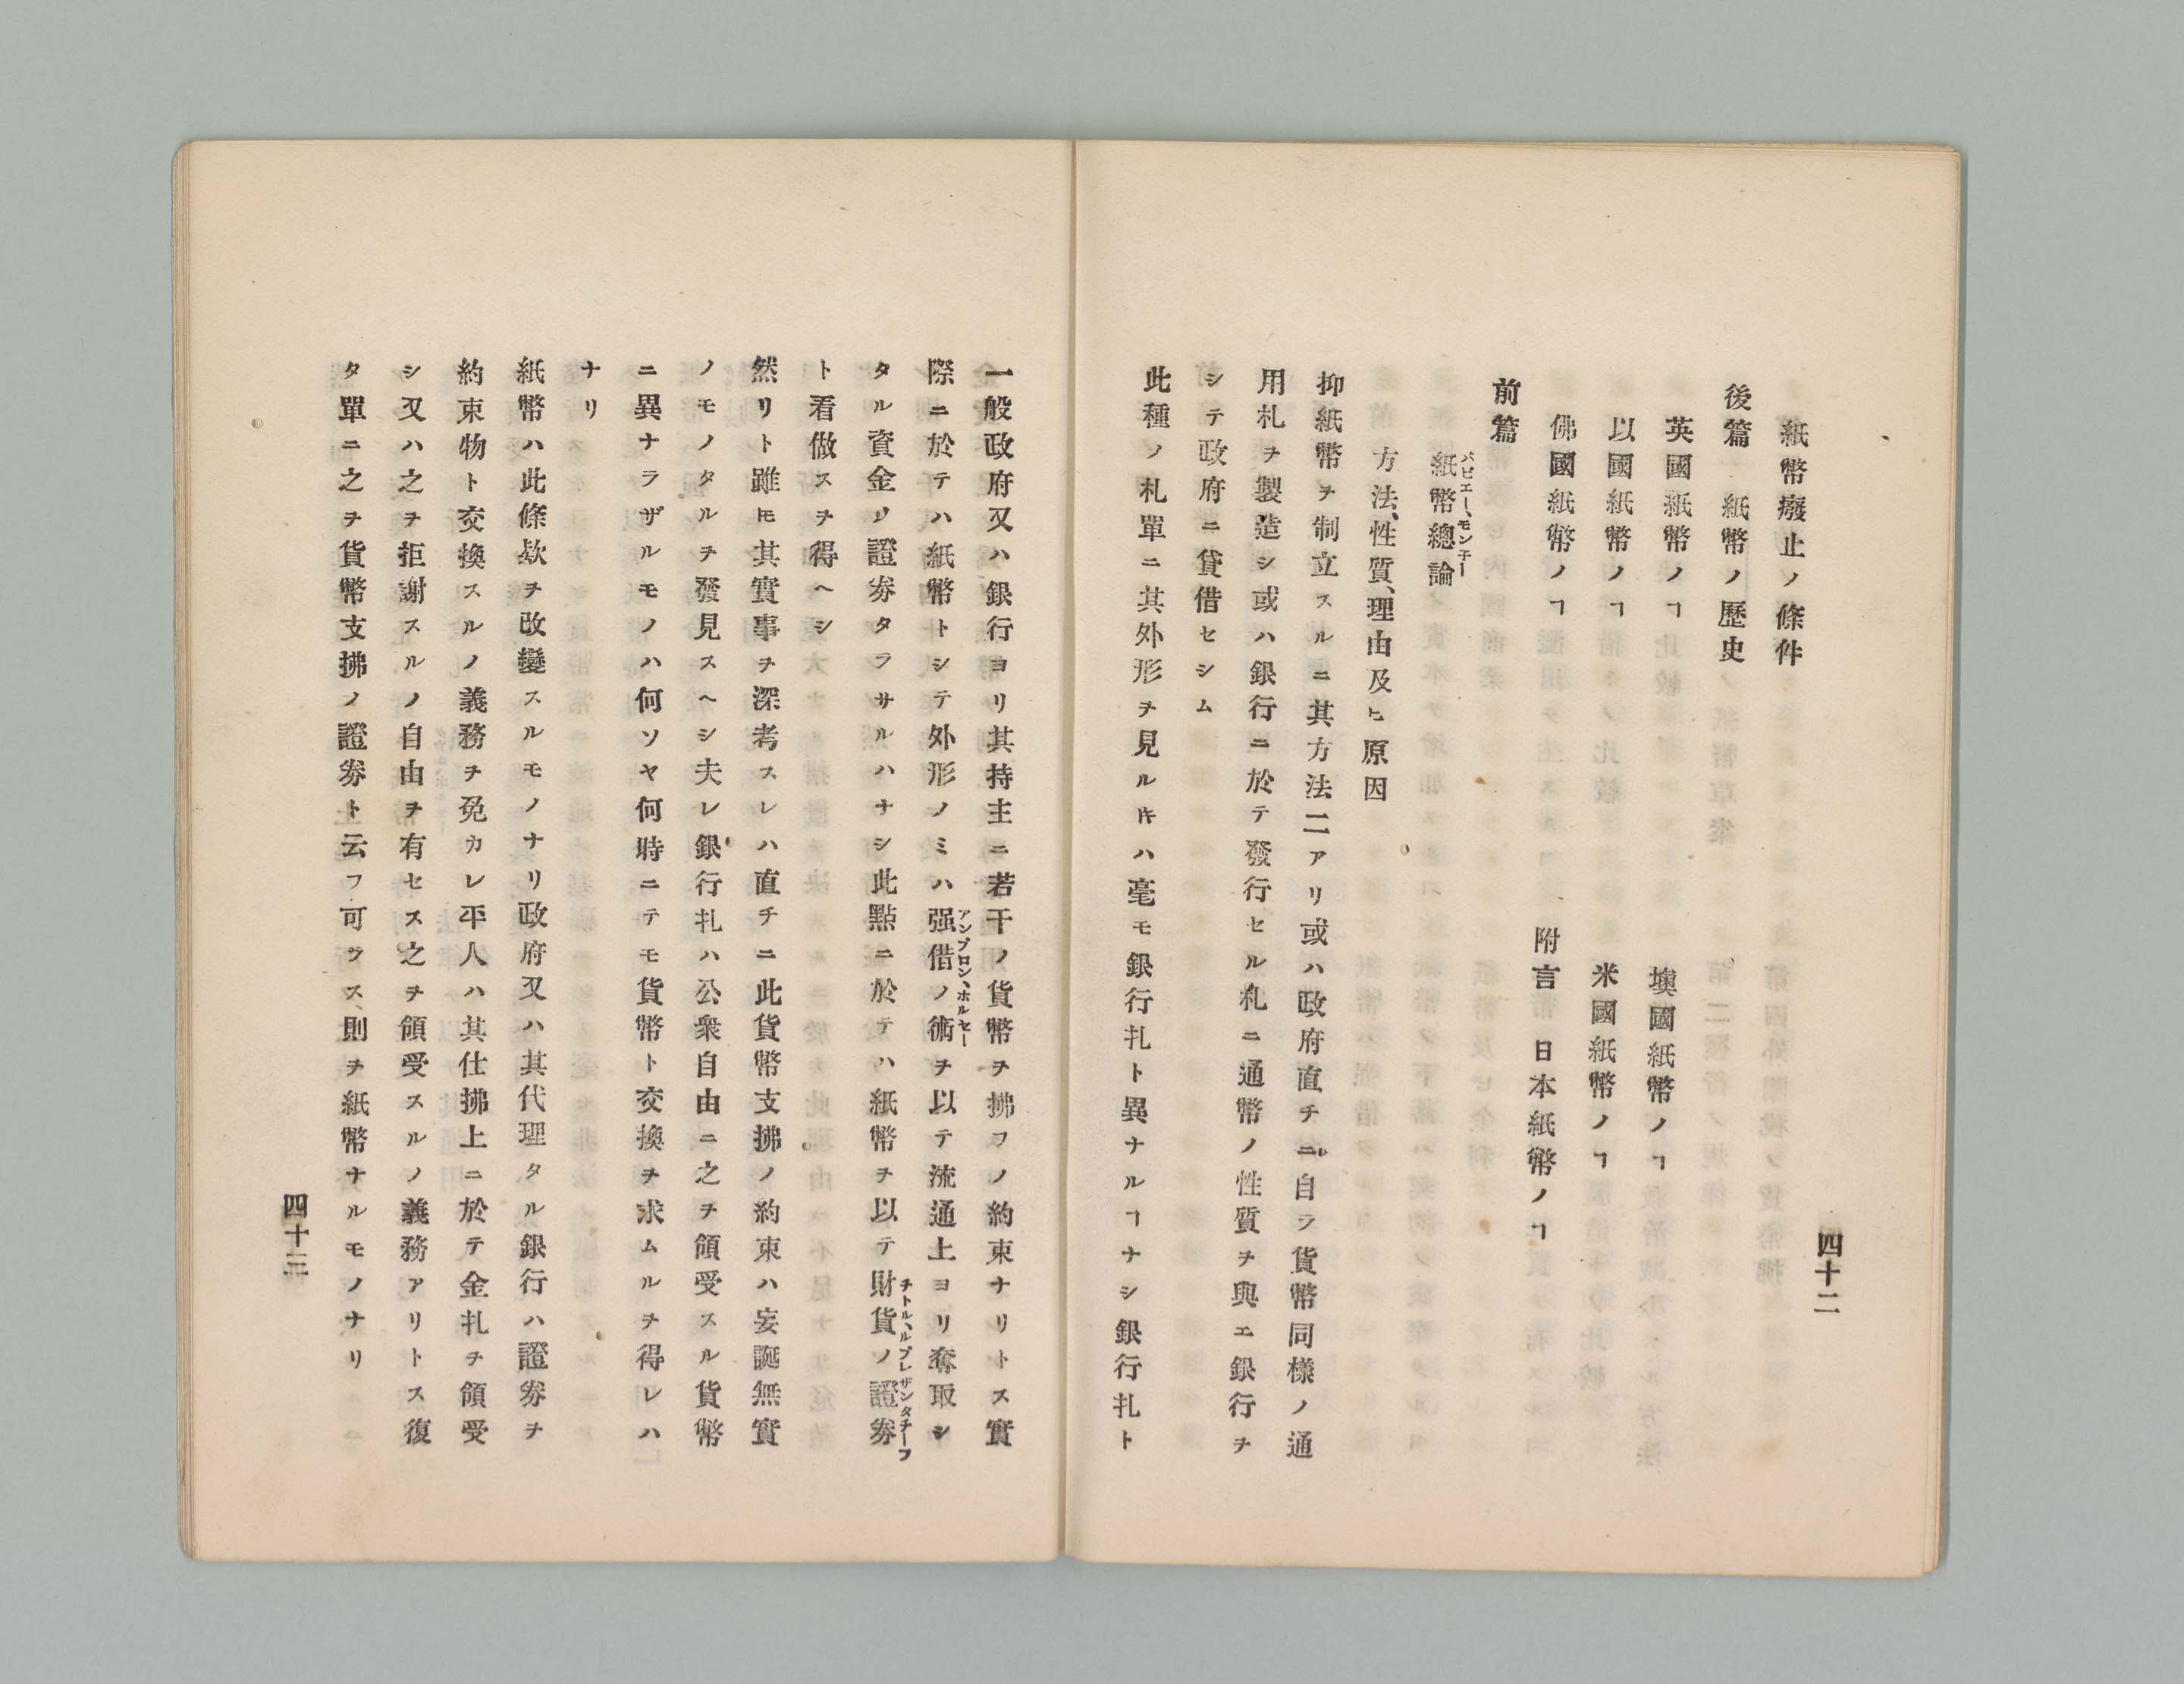 四十二
紙幣廢止ノ條件
後篇　紙幣ノ歷史
英國紙幣ノヿ　墺國紙幣ノヿ
以國紙幣ノヿ　米國紙幣ノヿ
佛國紙幣ノヿ　附言　日本紙幣ノヿ
前篇
紙幣總論
パピエー、モンチー
方法、性質、理由及ヒ原因
抑紙幣ヲ制立スルニ其方法二アリ或ハ政府直チニ自ラ貨幣同樣ノ通
用札ヲ製造シ或ハ銀行ニ於テ發行セル札ニ通幣ノ性質ヲ與エ銀行ヲ
シテ政府ニ貸借セシム
此種ノ札單ニ其外形ヲ見ルキハ毫モ銀行札ト異ナルヿナシ銀行札ト
一般政府又ハ銀行ヨリ其持主ニ若干ノ貨幣ヲ拂フノ約束ナリトス實
際ニ於テハ紙幣トシテ外形ノミハ强借ノ術ヲ以テ流通上ヨリ奪取シ
アンプロン、ホルセー
タル資金ノ證劵タラサルハナシ此點ニ於テハ紙幣ヲ以テ財貨ノ證劵
チトル、ルプレザンタチーフ
ト看做スヲ得ヘシ
然リト雖𪜈其實事ヲ深考スレハ直チニ此貨幣支拂ノ約束ハ妄誕無實
ノモノタルヲ發見スヘシ夫レ銀行札ハ公衆自由ニ之ヲ領受スル貨幣
ニ異ナラザルモノハ何ソヤ何時ニテモ貨幣ト交換ヲ求ムルヲ得レハ
ナリ
紙幣ハ此條欵ヲ改變スルモノナリ政府又ハ其代理タル銀行ハ證劵ヲ
約束物ト交換スルノ義務ヲ免カレ平人ハ其仕拂上ニ於テ金札ヲ領受
シ又ハ之ヲ拒謝スルノ自由ヲ有セス之ヲ領受スルノ義務アリトス復
タ單ニ之ヲ貨幣支拂ノ證劵ト云フ可ラス、則チ紙幣ナルモノナリ
四十三